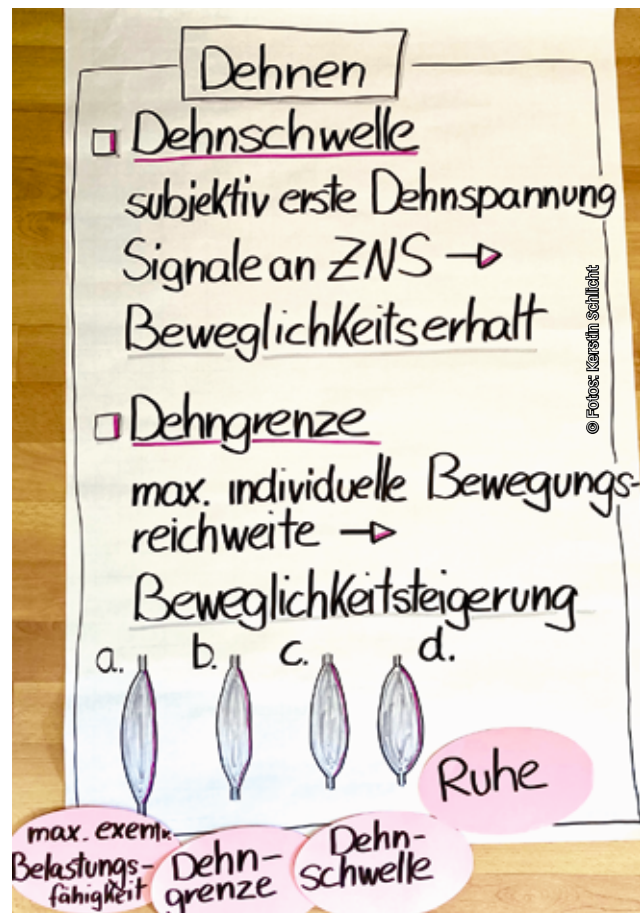 Dehnen
Dehnschwelle
subjektiv erste Dehnspannung
Signale an ZNS
Beweglichkeitserhalt
Dehngrenze
max. individuelle Bewegungs-
reichweite
Beweglichkeitsteigerung
a. b. c. d.
Ruhe
max. exent.
Belastungs-
fähigkeit
Dehn-
grenze
Dehn-
schwelle
© Fotos: Kerstin Schlicht